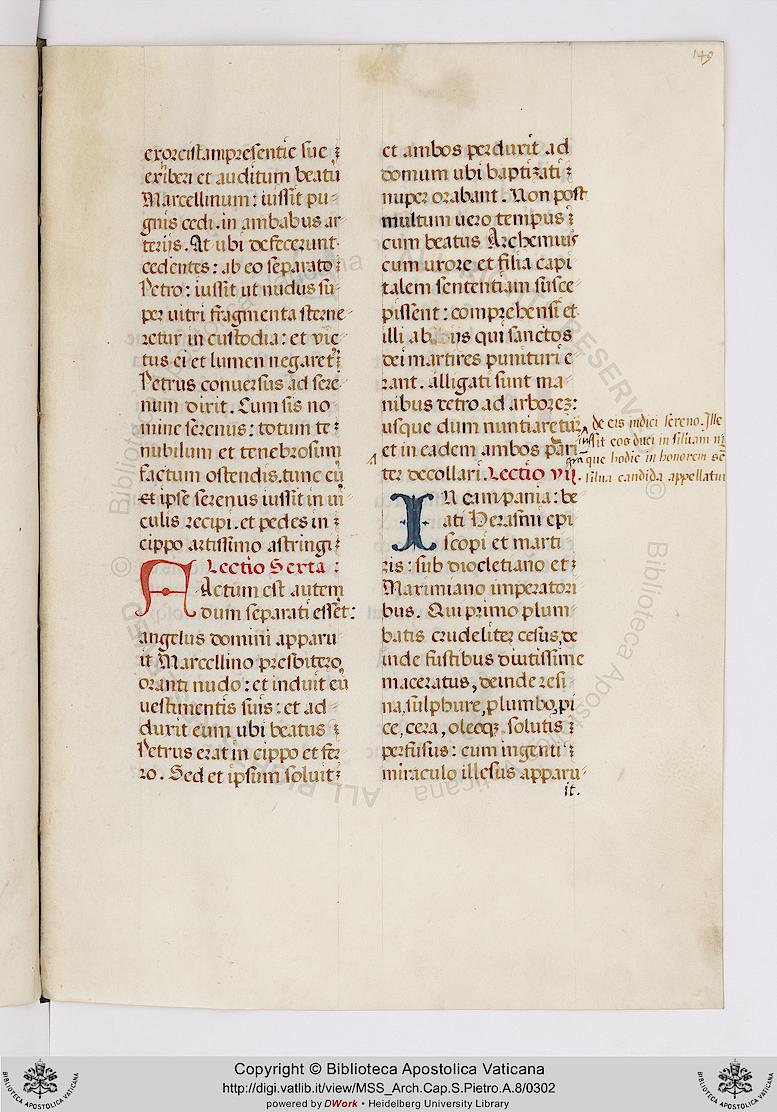 149
exorcistam presentie sue
exiberi et auditum beatū
Marcellinum: iussit pu-
gnis cedi. in ambabus ar-
teriis. At ubi defecerunt
cedentes: ab eo separato
Petro: iussit ut nudus su-
per uitri fragmenta sterne-
retur in custodia: et vic-
tus ei et lumen negaret
Petrus conuersus ad sere-
num dixit. Cum sis no
mine serenus: totum te
nubilum et tenebrosum
factum ostendis. tunc eū
et ipse serenus iussit in ui
culis recipi. et pedes in
cippo artissimo astringi
Lectio Sexta:
Actum est autem
dum separati essēt:
angelus domini apparu
it Marcellino presbitero,
oranti nudo: et induit eū
uestimentis suis: et ad-
duxit eum ubi beatus
Petrus erat in cippo et fer
ro. Sed et ipsum soluit
et ambos perduxit ad
domum ubi baptizati
nuper orabant. Non post
multum uero tempus
cum beatus Archemius
cum uxore et filia capi
talem sententiam susce-
pissent: comprehensi et
illi ab his qui sanctos
dei martires punituri e
rant. alligati sunt ma-
nibus retro ad arborez:
usque dum nuntiaretur
et in eadem ambos pari
ter decollari. Lectio vii.
de eis iudici sereno. Ille
iussit eos duci in siluam ni
que hodie in honorem
silua candida appellatur
IN campania: be
ati Herasmi epi
scopi et marti
ris: sub diocletiano et
Maximiano imperatori
bus. Qui primo plum-
batis crudeliter cesus, de
inde fustibus diutissime
maceratus, deinde resi
na, sulphure, plumbo, pi
ce, cera, oleoq. solutis
perfusus: cum ingenti
miraculo illesus apparu-
it.
Copyright © Biblioteca Apostolica Vaticana
http://digi.vatlib.it/view/MSS_Arch.Cap.S.Pietro.A.8/0302
powered by DWork • Heidelberg University Library
BIBLIOTECA APOSTOLICA VATICANA
BIBLIOTECA APOSTOLICA VATICANA